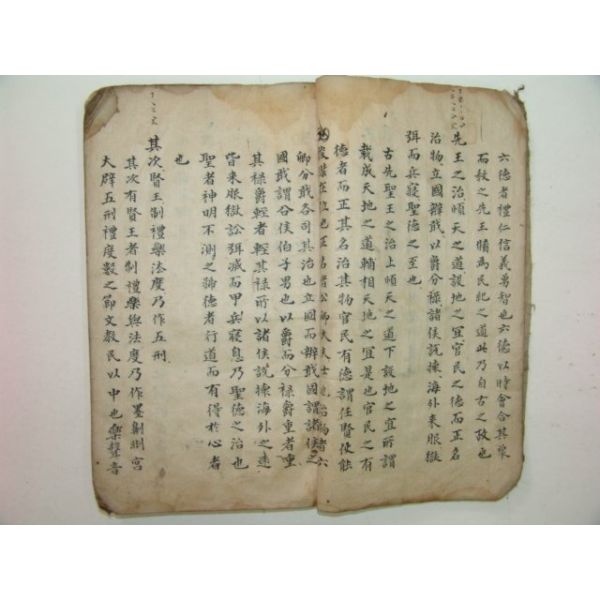 六德者禮仁信義勇智也六德以時會合其衆
而教之先王順爲民紀之道此乃自古之政也
先王之治順天之道設地之宜官民之德而正名
治物立國辨職以爵分祿諸侯說揀海外來服獄
弭而兵寢聖德之至也
古先聖王之治上順天之道下設地之宜所謂
裁成天地之道輔相天地之宜是也官民之有
德者而正其名治其物官民有德謂任賢使能
卿分職各司其治也立國而辨職國謂諸侯之
國職謂公侯伯子男也以爵而分祿爵重者重
其祿爵輕者輕其祿所以諸侯說揀海外之遠
皆來服獄訟弭減而甲兵寢息乃聖德之治也
聖者神明不測之號德者行道而有得於心者
也
其次賢王制禮樂法度乃作五刑
其次有賢王者制禮樂與法度乃作墨劓剕宮
大辟五刑禮度數之節文教民以中也樂聲音